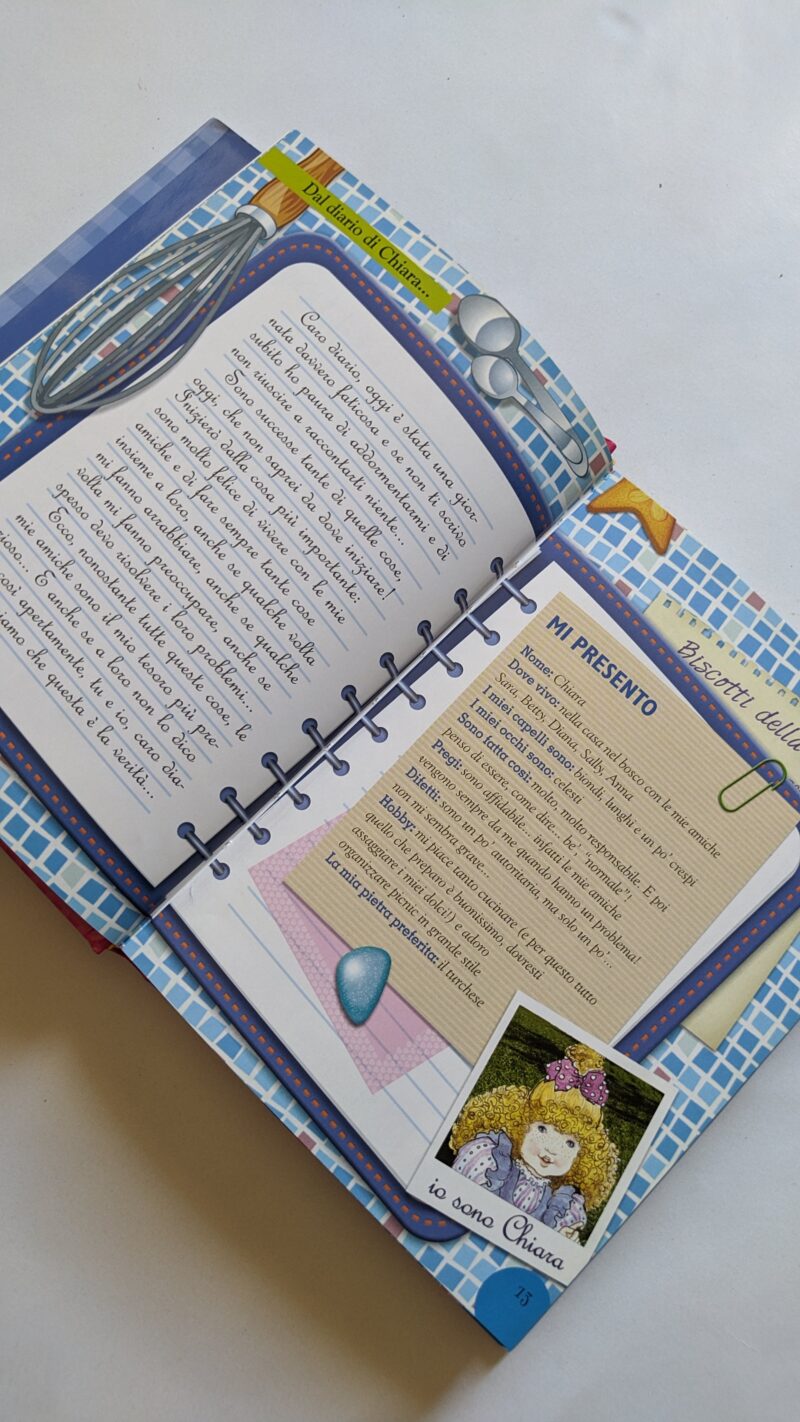 Dal diario di Chiara...
Caro diario, oggi è stata una gior-
nata davvero faticosa e se non ti scrivo
subito ho paura di addormentarmi e di
non riuscire a raccontarti niente...
Sono successe tante di quelle cose,
oggi, che non saprei da dove iniziare!
Inizierò dalla cosa più importante:
sono molto felice di vivere con le mie
amiche e di fare sempre tante cose
insieme a loro, anche se qualche volta
mi fanno arrabbiare, anche se qualche
volta mi fanno preoccupare, anche se
spesso devo risolvere i loro problemi...
Ecco, nonostante tutte queste cose, le
mie amiche sono il mio tesoro più pre-
zioso... E anche se a loro non lo dico
così apertamente, tu e io, caro dia-
che questa è la verità...
MI PRESENTO
Nome: Chiara
Dove vivo: nella casa nel bosco con le mie amiche
Sara, Betty, Diana, Sally, Anna
I miei capelli sono: biondi, lunghi e un po' crespi
I miei occhi sono: celesti
Sono fatta così: molto, molto responsabile. E poi
penso di essere, come dire... be' "normale"!
Pregi: sono affidabile... infatti le mie amiche
vengono sempre da me quando hanno un problema!
Difetti: sono un po' autoritaria, ma solo un po'...
non mi sembra grave...
Hobby: mi piace tanto cucinare (e per questo tutto
quello che preparo è buonissimo, dovresti
assaggiare i miei dolci!) e adoro
organizzare picnic in grande stile
La mia pietra preferita: il turchese
Biscotti della
io sono Chiara
15